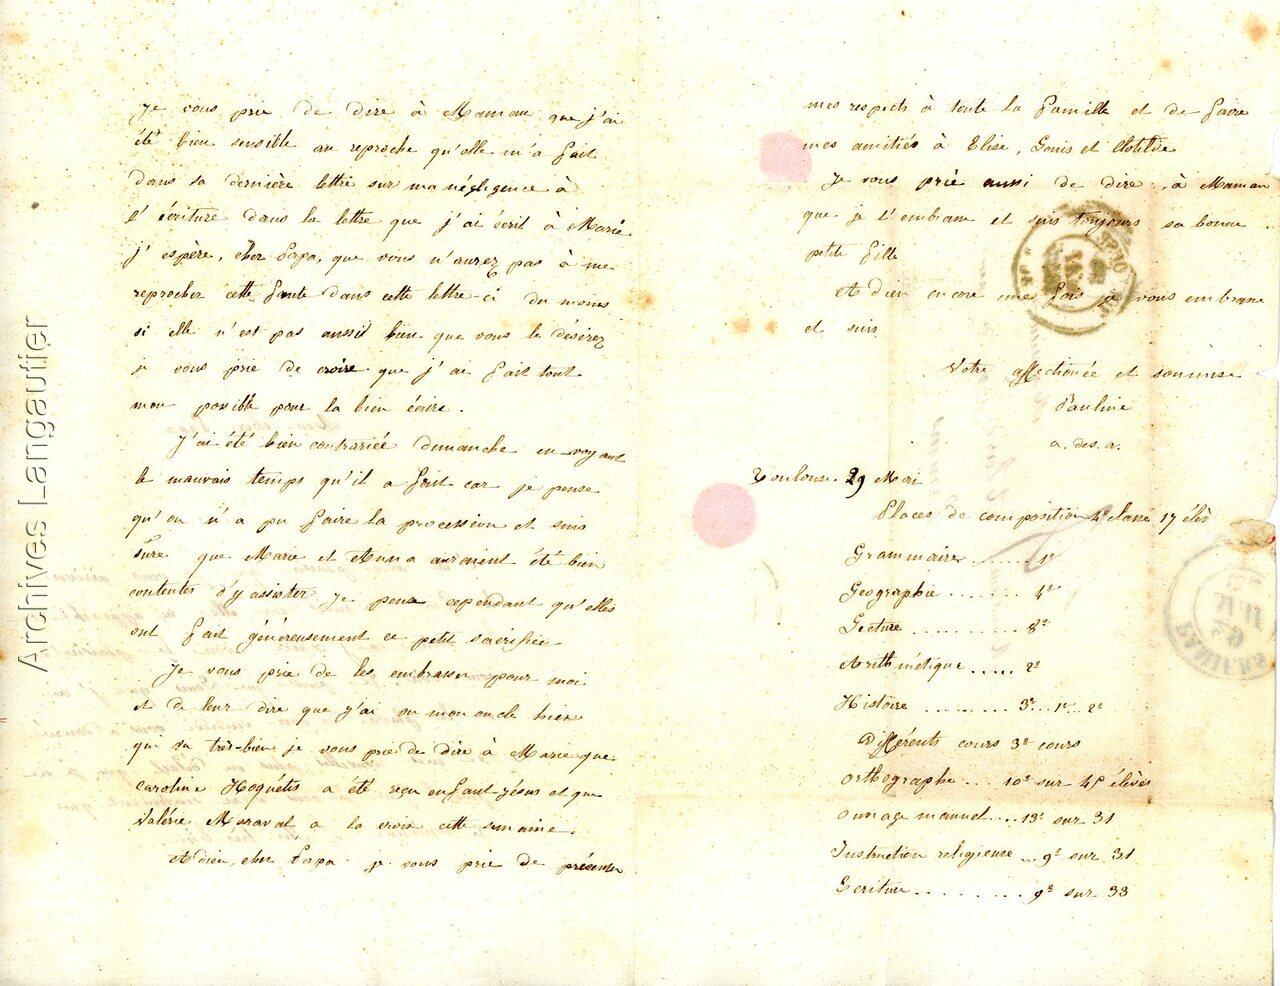 Je vous prie de dire à Maman que j'ai
été bien sensible au reproche qu'elle m'a fait
dans sa dernière lettre sur ma négligence à
l'écriture dans la lettre que j'ai écrit à Marie
j'espère, cher Papa, que vous n'aurez pas à me
reprocher cette faute dans cette lettre-ci du moins
si elle n'est pas aussi bien que vous le désirez
je vous prie de croire que j'ai fait tout
mon possible pour la bien écrire.
J'ai été bien contrariée dimanche en voyant
le mauvais temps qu'il a fait car je pense
qu'on n'a pu faire la procession et suis
sûre que Marie et Anna auraient été bien
contentes d'y assister je pense cependant qu'elles
ont fait généreusement ce petit sacrifice
Je vous prie de les embrasser pour moi
et de leur dire que j'ai vu mon oncle hier
qui va très-bien je vous prie de dire à Marie que
Caroline Hoquétis a été reçu enfant jésus et que
Valérie Maraval a la croix cette semaine.
Adieu, cher Papa je vous prie de présenter
mes respects à toute la famille et de faire
mes amitiés à Elise, Louis et Clotilde
Je vous prie aussi de dire à Maman
que je l'embrasse et suis toujours sa bonne
petite fille
Adieu encore une fois je vous embrasse
et suis
Votre affectionée et soumise
Pauline
a. des. a.
Toulouse. 29 Mai
Places de composition 4e classe 17 élè
Grammaire ....... 1e
Géographie ....... 4e
Lecture .......... 8e
Arithmétique ..... 2e
Histoire ......... 3e.. 1e.. 2e
différents cours 3e cours
Orthographe ... 10e sur 45 élèves
Ouvrage manuel.... 13e sur 31
Instruction religieuse ... 9e sur 31
Ecriture .......... 9e sur 33
Archives Langautier
PAMIERS